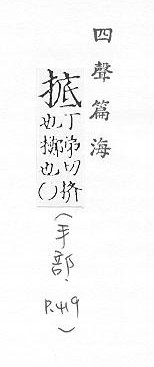 四聲篇海
掋
丁第切挤
也擲也()
(手部.
P.419)